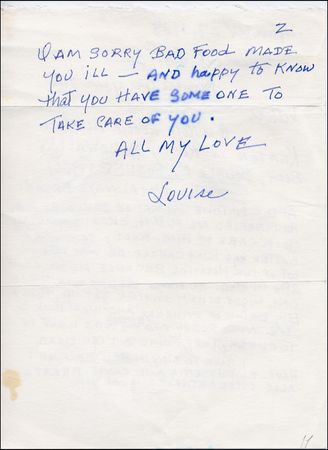 2
I AM SORRY BAD FOOD MADE
you ill — AND happy to KNOW
that you HAVE SOME ONE TO
TAKE CARE OF YOU.
ALL MY LOVE
Louise